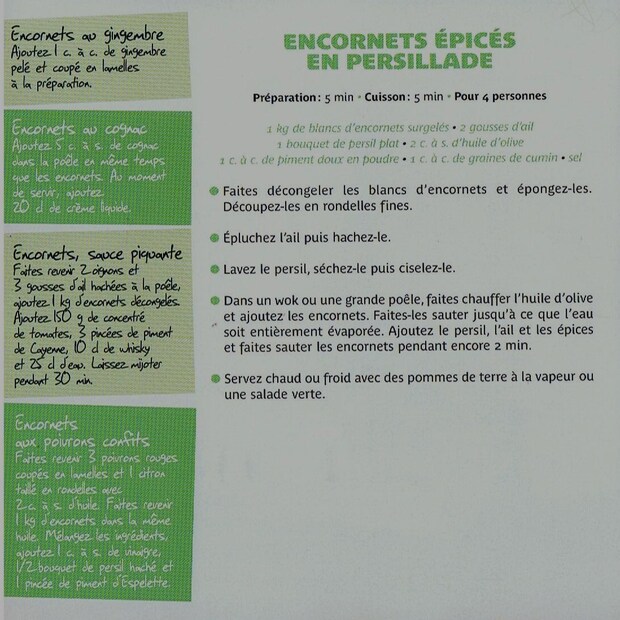 Encornets au gingembre
Ajoutez 1 c. à c. de gingembre
pelé et coupé en lamelles
à la préparation.
Encornets au cognac
Ajoutez 5 c. à s. de cognac
dans la poêle en même temps
que les encornets. Au moment
de servir, ajoutez
20 cl de crème liquide.
Encornets, sauce piquante
Faites revenir 2 oignons et
3 gousses d'ail hachées à la poêle,
ajoutez 1 kg d'encornets décongelés.
Ajoutez 150 g de concentré
de tomates, 3 pincées de piment
de Cayenne, 10 cl de whisky
et 25 cl d'eau. Laissez mijoter
pendant 30 min.
Encornets
aux poivrons confits
Faites revenir 3 poivrons rouges
coupés en lamelles et 1 citron
taillé en rondelles avec
2 c. à s. d'huile. Faites revenir
1 kg d'encornets dans la même
huile. Mélangez les ingrédients,
ajoutez 1 c. à s. de vinaigre,
1/2 bouquet de persil haché et
1 pincée de piment d'Espelette.
ENCORNETS ÉPICÉS
EN PERSILLADE
Préparation : 5 min • Cuisson : 5 min • Pour 4 personnes
1 kg de blancs d'encornets surgelés • 2 gousses d'ail
1 bouquet de persil plat • 2 c. à s. d'huile d'olive
1 c. à c. de piment doux en poudre • 1 c. à c. de graines de cumin • sel
Faites décongeler les blancs d'encornets et épongez-les.
Découpez-les en rondelles fines.
Épluchez l'ail puis hachez-le.
Lavez le persil, séchez-le puis ciselez-le.
Dans un wok ou une grande poêle, faites chauffer l'huile d'olive
et ajoutez les encornets. Faites-les sauter jusqu'à ce que l'eau
soit entièrement évaporée. Ajoutez le persil, l'ail et les épices
et faites sauter les encornets pendant encore 2 min.
Servez chaud ou froid avec des pommes de terre à la vapeur ou
une salade verte.